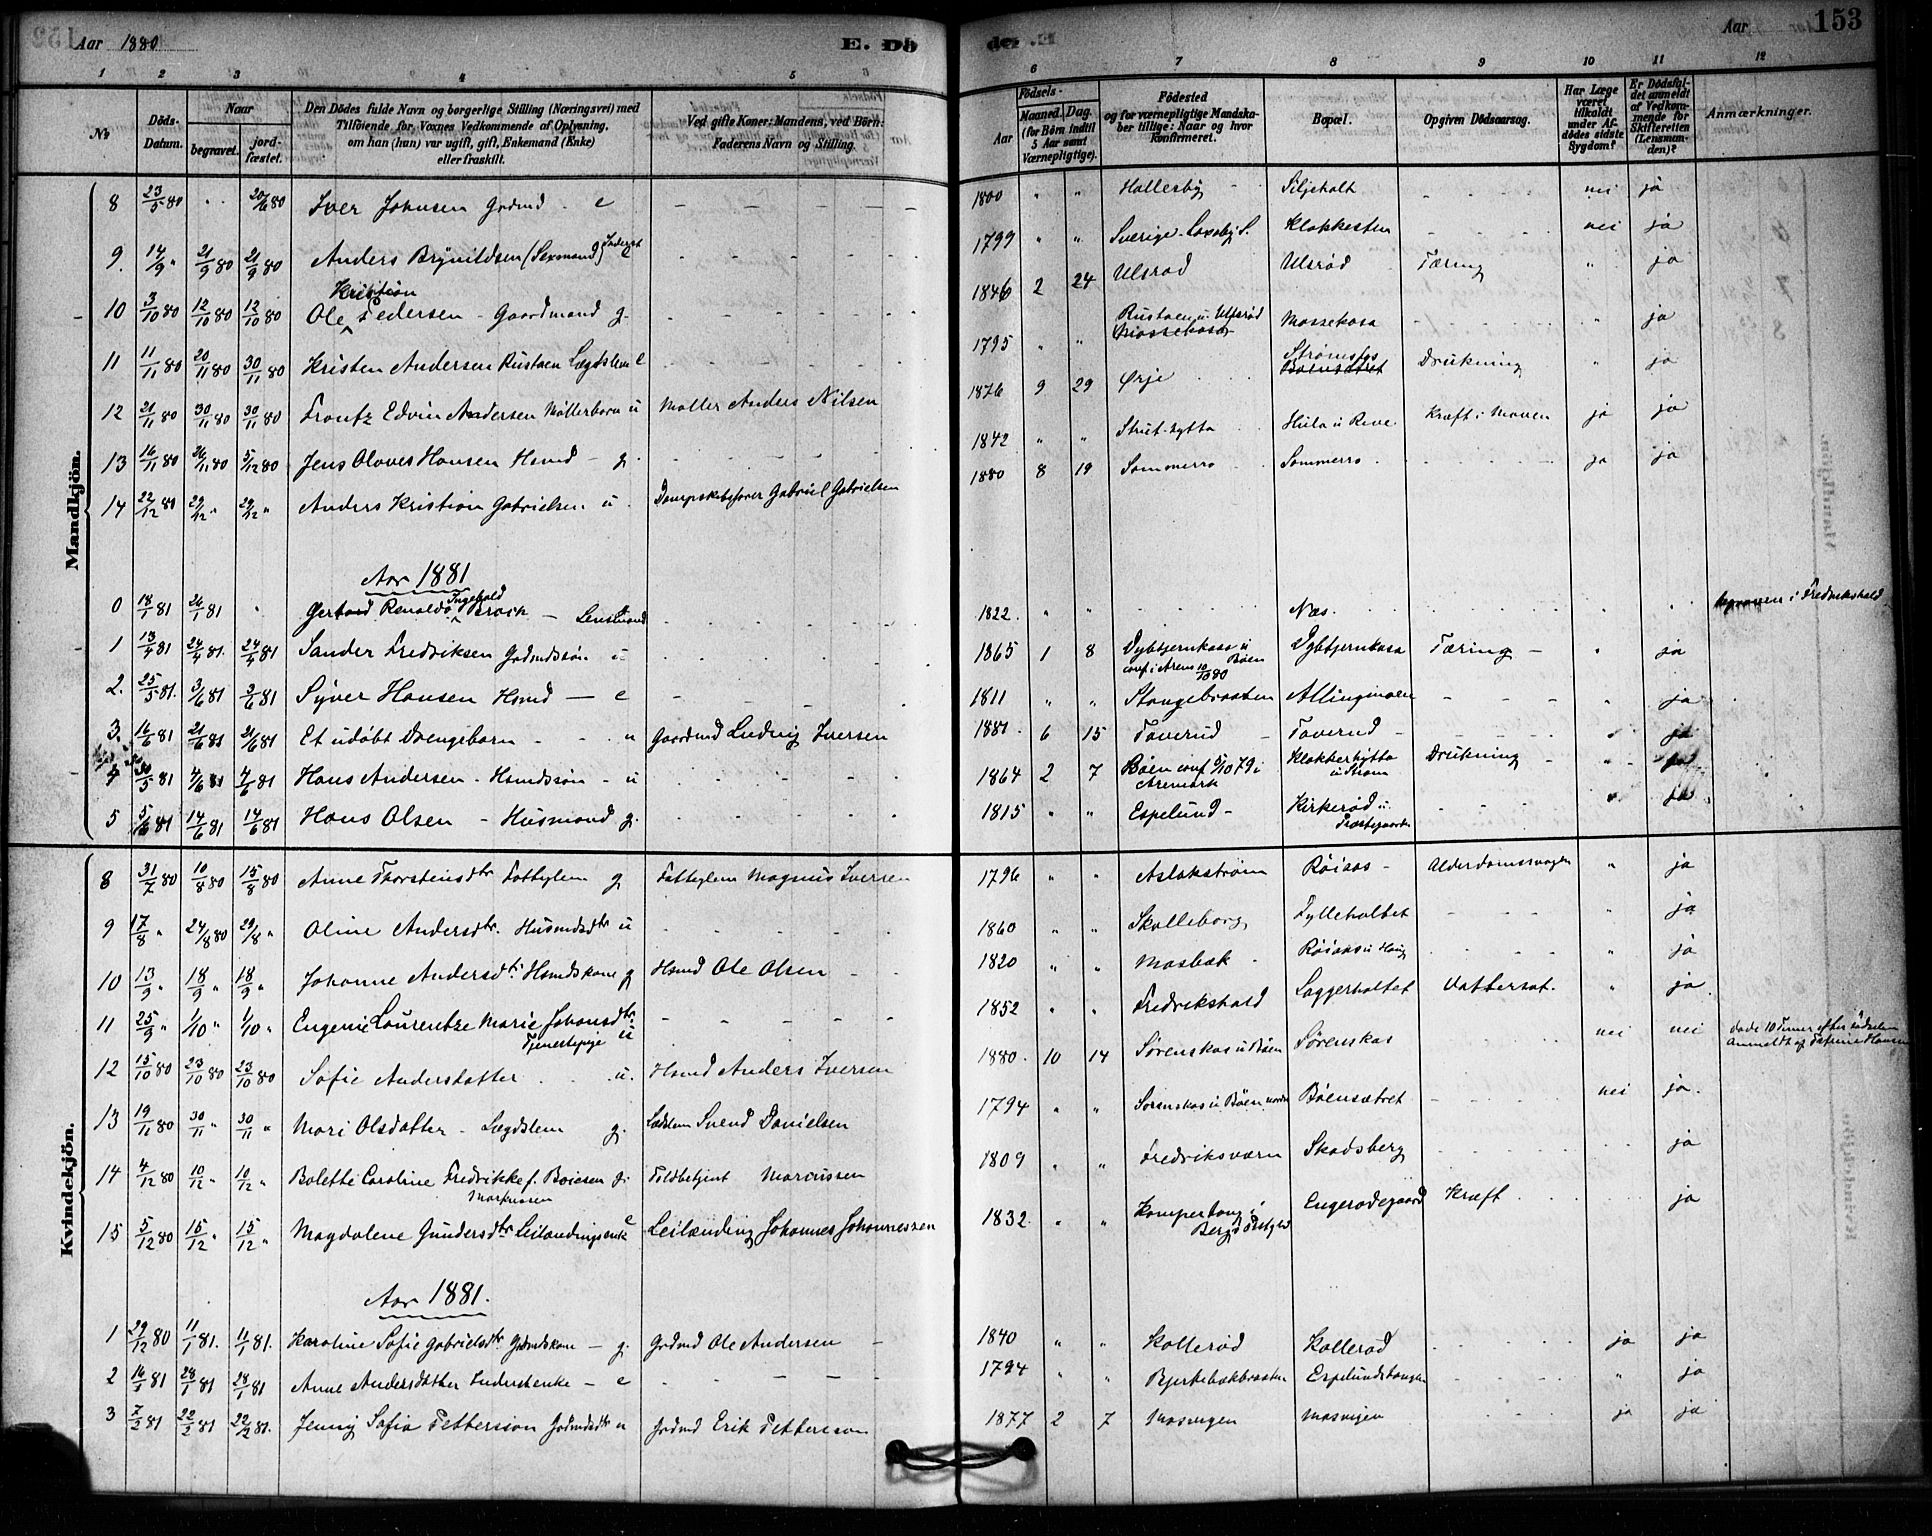 Aar 1880
E. Dö
der. E.
Aar
153
1 2 3 4 5
6 7 8 9 10 11 12
No
Döds-Datum.
Naar
begravet.
jord-fæstet.
Den Dödes fulde Navn og borgerlige Stilling (Næringsvei) med
Tilföiende for Voxnes Vedkommende af Oplysning,
om han (hun) var ugift, gift, Enkemand (Enke)
eller fraskilt.
Ved gifte Koner: Mandens, ved Börn:
Faderens Navn og Stilling.
Födsels-
Aar
Maaned. Dag.
(for Börn indtil
5 Aar samt
Værnepligtige).
Födested
og for værnepligtige Mandska-
ber tillige: Naar og hvor
konfirmeret.
Bopæl.
Opgiven Dödsaarsag.
Har Læge
været
tilkaldt
under Af-
dödes sidste
Sygdom?
Er Dödsfal-
det anmeldt
af Vedkom-
mende for
Skifteretten
(Lensman-
den)?
Anmærkninger.
Mandkjön.
8 23/5 80 " 20/6 80 Iver Johnsen Grdmd - e 1800 " " Hallesby Siljeholt nei ja
9. 14/9 " 21/9 80 21/9 80 Anders Brynildsen (Sexmand) Inderst e 1799 " " Sverige Klokkesten nei ja
10 3/10 80 12/10 80 12/10 80 Ole Kristian Pedersen - Gaardmand g. 1846 2 24 Ulsrød Ulsrød Tæring " ja
11 11/11 80 20/11 80 30/11 80 Kristen Andersen Rustaen Lægdslem e 1795 " " Rustaen u. Ulsrød Mossekasa " ja
12 21/11 80 30/11 80 30/11 80 Frantz Edvin Andersen Møllerbarn u Møller Anders Nilsen 1876 9 29 Ørje Strømsfos Drukning " ja
13 16/11 80 26/11 80 5/12 80 Jens Olaves Hansen Hsmd - g. 1842 " " Kræft i Maven ja ja
14 22/12 80 29/12 " 29/12 " Anders Kristian Gabrielsen u. Dampskibsfører Gabriel Gabrielsen 1880 8 19 Sommerro Sommerro ja ja
Aar 1881
0 18/1 81 26/1 81 " Gerhard Renaldo Ingebald Brock - Lensmand 1822 " " Næs. begraven i Fredrikshald
1 13/4 81 24/4 81. 24/4 81 Sander Fredriksen Grdmdssøn u 1865 1 8 Dybtjernkasa u Bøen Dybtjernkasa Tæring - " ja
conf i Arem 10/10 80
2. 25/5 81. 3/6 81 3/6 81 Syver Hansen Hsmd - e 1811 " " Stangebraaten Allingmoen ja
3. 16/6 81 21/6 81 21/6 81 Et udøbt Drengebarn - u Gaardmd Ludvig Iversen 1881. 6 15 Taverud Taverud " ja
4 30/5 81 4/6 81 4/6 81 Hans Andersen - Hsmdssøn - u 1864 2 7 Bøen conf 5/10 79 i Aremark Klokkerhytta u Strøm Drukning " ja
5 5/6 81 14/6 81 14/6 81 Hans Olsen - Husmand g. 1815 " " Espelund - Kirkerød u. Præstegaarden " ja
Kvindekjön.
8 31/7 80 10/8 80 15/8 80 Anne Thorstensdtr Fattiglem g Fattiglem Magnus Iversen 1796 " " Aslakstrøm Røiaas - Alderdomssvaghed " ja
9 17/8 " 24/8 80 29/8 " Oline Andersdtr. Husmdsdtr u 1860 " " Skolleborg Fylleholtet " ja
10 13/9 " 18/9 " 18/9 " Johanne Andersdtr Hsmdskone g Hsmd Ole Olsen 1820 " " Mosbæk Røiaas u Haug ja
11 25/9 " 1/10 " 1/10 " Eugenie Laurentze Marie Johansdtr Tjenestepige u 1852 " " Fredrikshald Laggerholtet Vattersot. " ja
12 15/10 80 23/10 80 23/10 80 Sofie Andersdatter u. Hsmd Anders Iversen 1880. 10 14 Sørenskas u Bøen Sørenskas nei nei døde 10 Timer efter Fødselen
Anmeldt af Hansen
13 19/11 80 30/11 " 30/11 " Mari Olsdatter - Lægdslem g. Lædslem Svend Danielsen 1794 " " Sørenskas u Bøen nordre Bøensætret nei ja.
14 4/12 80 10/12 " 10/12 " Bolette Caroline Fredrikke f. Boiesen Markussen g. Toldbetjent Marcussen 1809 " " Fredriksværn Skodsberg ja
15 5/12 80 15/12 " 15/12 " Magdalene Gundersdtr Leilændingsenke e Leilænding Johannes Johannessen 1832. " " Kamperhaug i Bergs Prstgjæld Engerødegaard Kræft ja
Aar 1881.
1 29/12 80 11/1 81. 11/1 81. Karoline Sofie Gabrielsdtr Grdmdskone - g. Grdmd Ole Andersen 1840 " " Kollerød Kollerød ja ja
2 16/1 81 28/1 81 28/1 81 Anne Andersdatter Inderstenke - e 1794 " " Bjerkebækbraaten Espelundshaugen " ja
3 7/2 81 22/2 81 22/2 81. Jenny Sofia Pettersson Grdmdsdtr u Grdmd Erik Petterson 1877 2 7 Mosvigen Mosvigen ja ja